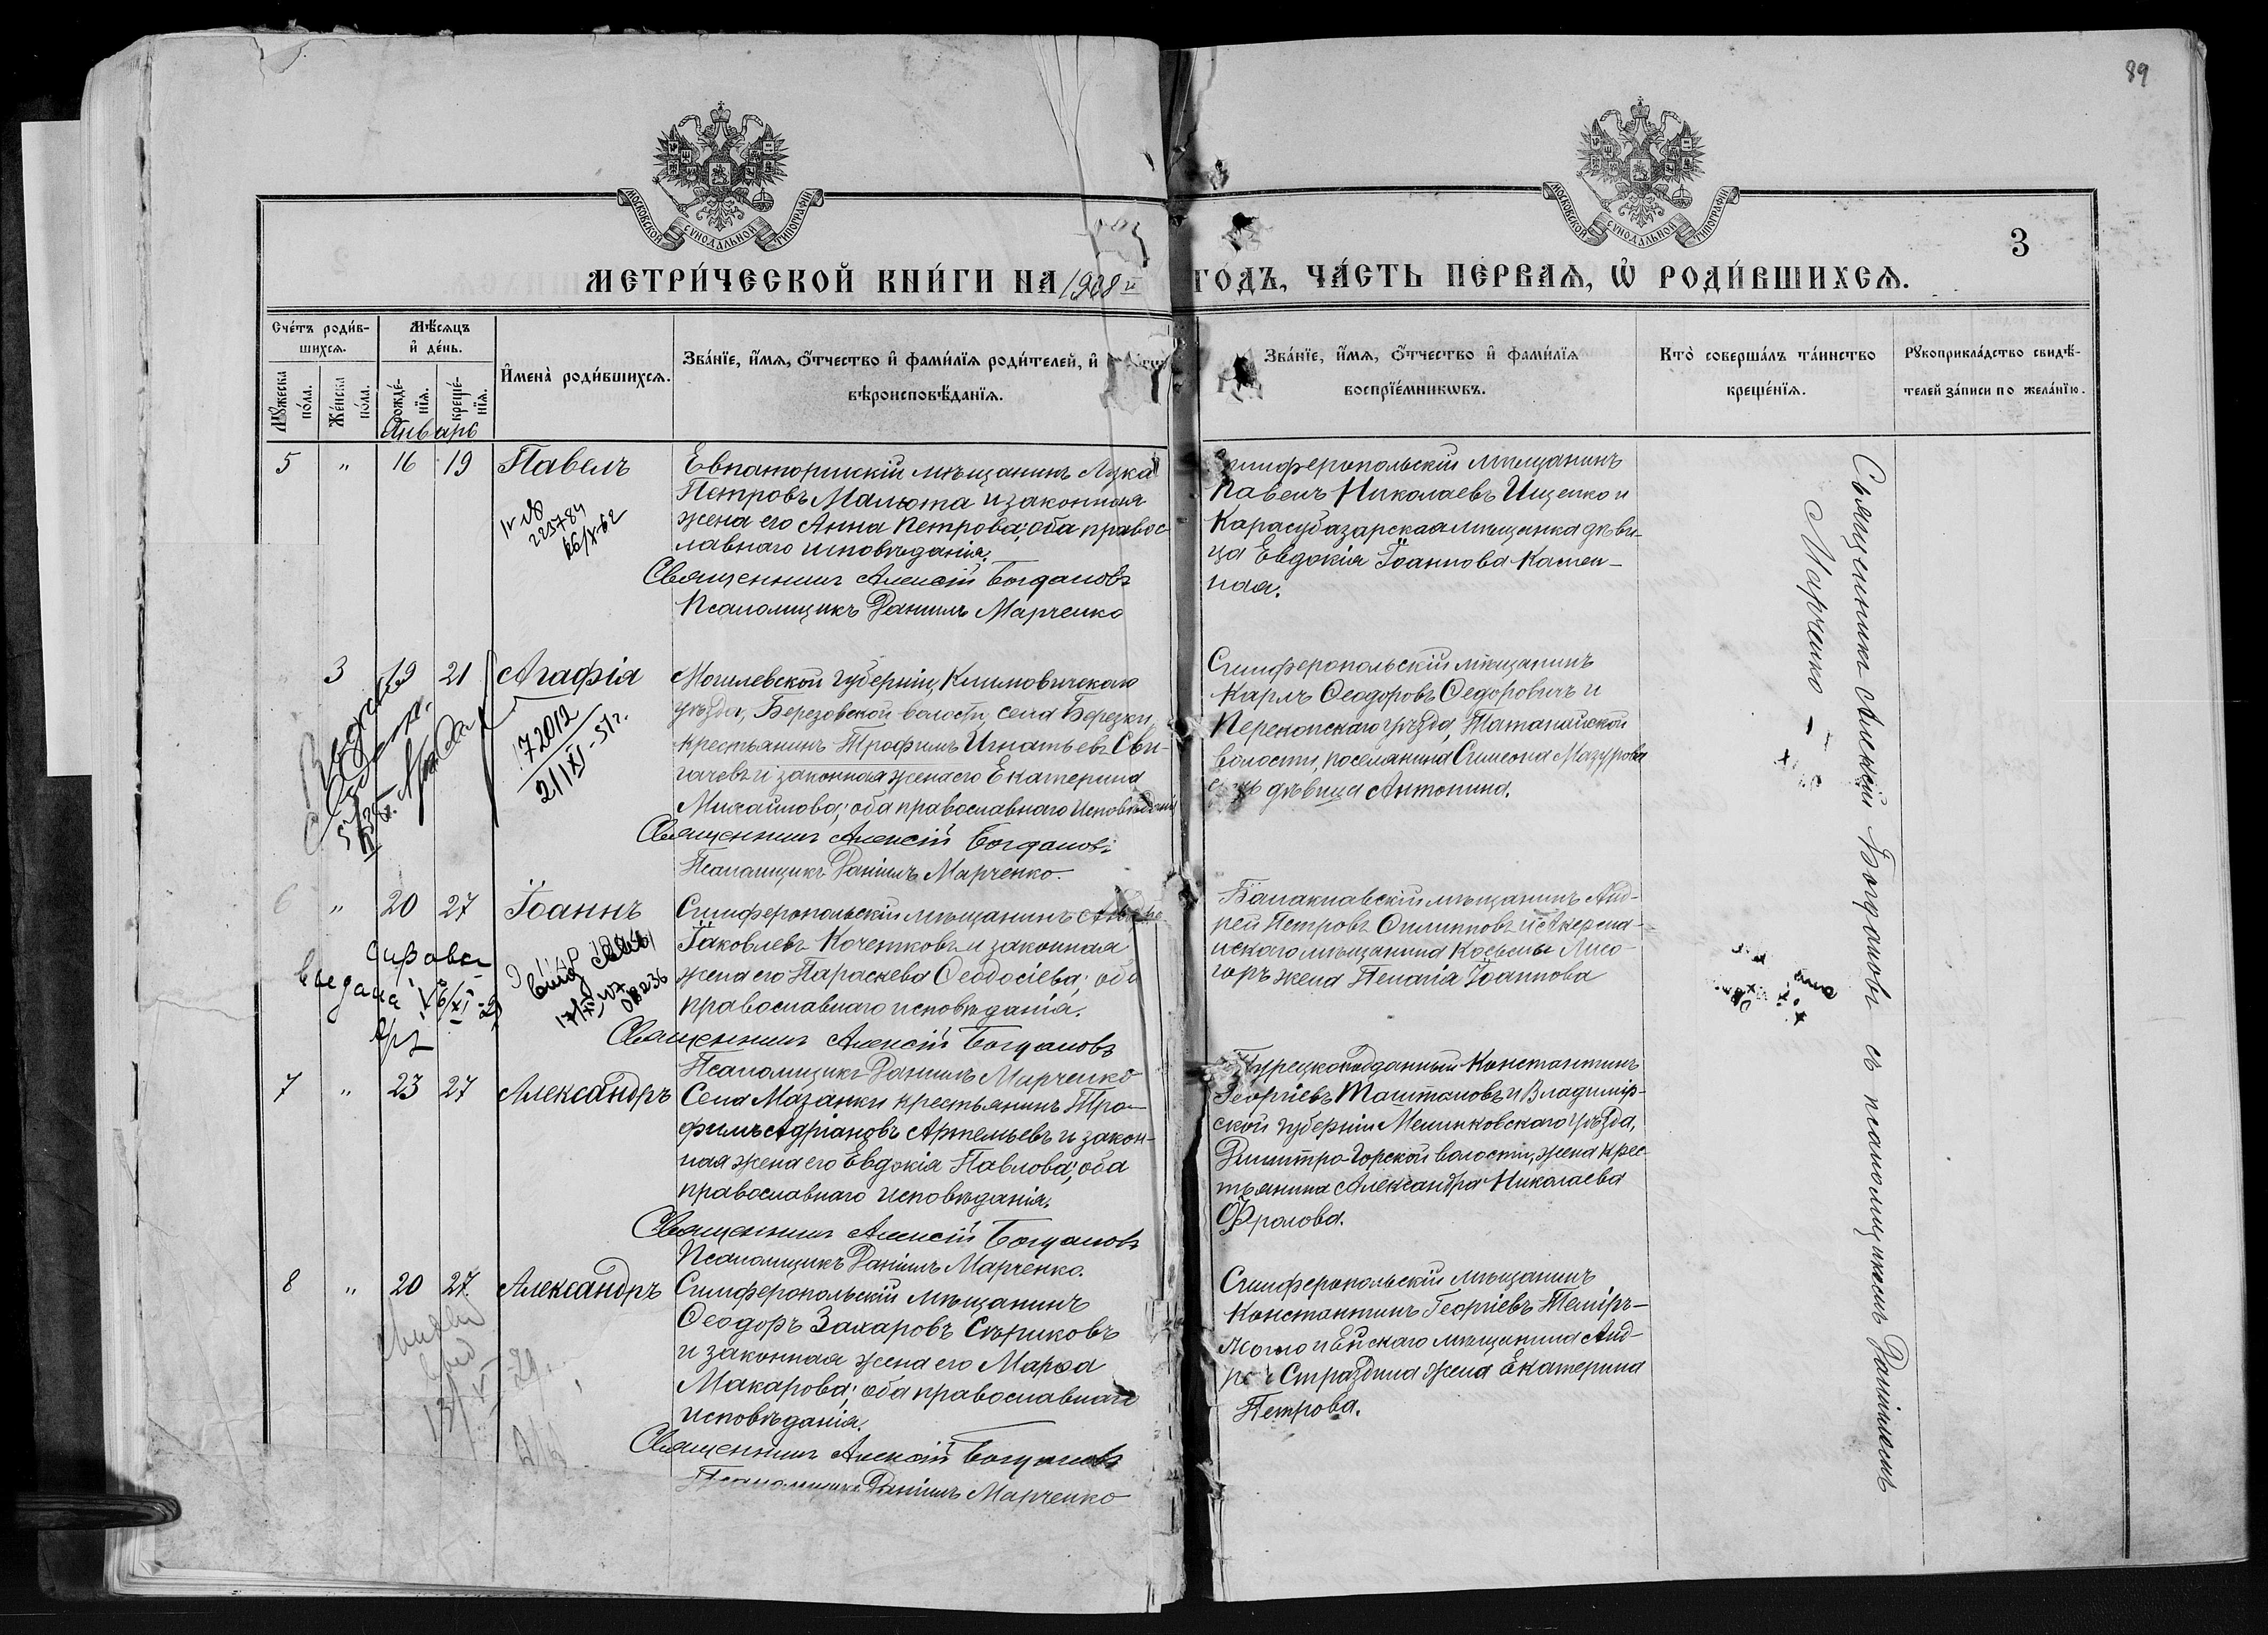 89
МОСКОВСКОЙ СѴНОДАЛЬНОЙ ТИПОГРАФІИ
МОСКОВСКОЙ СѴНОДАЛЬНОЙ ТИПОГРАФІИ
3
МЕТРИ́ЧЕСКОЙ КНИ́ГИ НА 1908 й ГОДЪ, ЧА́СТЬ ПЕРВАЯ, Ѡ҆ РОДИ́ВШИХСЯ.
Сче́тъ роди́в-
шихся.
Мѣ́сяцъ
и҆ де́нь.
Мꙋ́жеска
по́ла.
Же́нска
по́ла.
рожде́-
нїя.
креще́-
нїя.
И҆мена̀ роди́вшихся.
Зва́нїе, и҆́мя, ѻ҆́тчество и҆ фами́лїя роди́телей, и҆
вѣроисповѣ́данїя.
Зва́нїе, и҆́мя, ѻ҆́тчество и҆ фами́лїя
воспрїе́мникѡвъ.
Кто̀ соверша́лъ та́инство
креще́нїя.
Рꙋкоприкла́дство свидѣ́-
телей за́писи по жела́нїю.
Январь
5 " 16 19 Павелъ
Евпаторійскій мѣщанинъ Лука
Петровъ Малюта и законная
жена его Анна Петрова; оба правос-
лавнаго исповѣданія.
Священникъ Алексій Богдановъ
Псаломщикъ Даніилъ Марченко
Симферопольскій мѣщанинъ
Павелъ Николаевъ Ищенко и
Карасубазарская мѣщанка дѣви-
ца Евдокія Іоаннова Камен-
ная.
225784
3 19 21 Агафія
172012
21/XI-51г.
Могилевской губерніи, Климовичскаго
уѣзда, Березовской волости, села Березки,
крестьянинъ Трофимъ Игнатьевъ Сви-
гачевъ и законная жена его Екатерина
Михаилова; оба православнаго исповѣданія
Священникъ Алексій Богдановъ
Псаломщикъ Даніилъ Марченко.
Симферопольскій мѣщанинъ
Карлъ Ѳеодоровъ Ѳедоровичъ и
Перекопскаго уѣзда,
волости, поселянина Симеона Мазурова
дѣвица Антонина.
6 " 20 27 Іоаннъ
справка
выдана
Симферопольскій мѣщанинъ
Іаковлевъ Кочетковъ и законная
жена его Параскева Ѳеодосіева; оба
православнаго исповѣданія.
Священникъ Алексій Богдановъ
Псаломщикъ Даніилъ Марченко
Балаклавскій мѣщанинъ Анд-
рей Петровъ Филипповъ и
мѣщанина Косьмы Лисо-
горъ жена Пелагія Іоаннова
7 " 23 27 Александръ
Села Мазанки крестьянинъ Тро-
фимъ Адріановъ Артемьевъ и закон-
ная жена его Евдокія Павлова; оба
православнаго исповѣданія.
Священникъ Алексій Богдановъ
Псаломщикъ Даніилъ Марченко.
Турецкоподданный Константинъ
Георгіевъ Таштановъ и Владимір-
ской губерніи Меленковскаго уѣзда,
Димитро-Горской волости, жена крес-
тьянина Александра Николаева
Фролова.
8 " 20 27. Александръ
Симферопольскій мѣщанинъ
Ѳеодоръ Захаровъ Сѣриковъ
и законная жена его Марѳа
Макарова; оба православнаго
исповѣданія.
Священникъ Алексій Богдановъ
Псаломщикъ Даніилъ Марченко
Симферопольскій мѣщанинъ
Константинъ Георгіевъ Темиръ-
и Ейскаго мѣщанина Анд-
Страздина жена Екатерина
Петрова.
Священникъ Алексій Богдановъ съ псаломщикомъ Данииломъ
Марченко